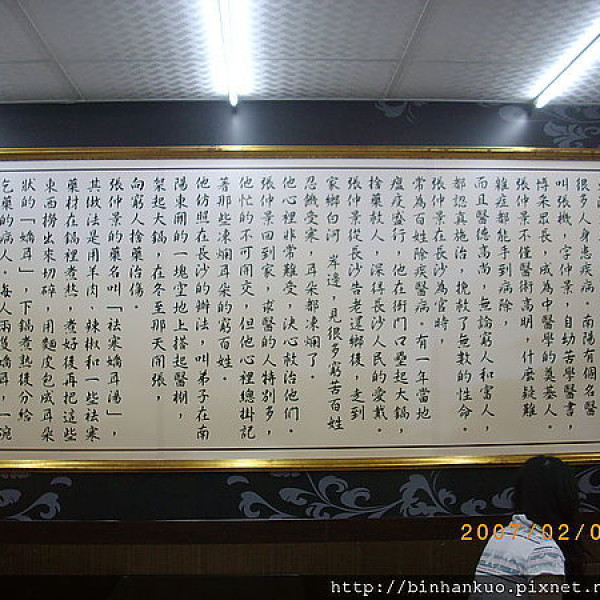 很多人身患疾病．南陽有個名醫
叫張機，字仲景，自幼苦學醫書，
博采眾長，成為中醫學的奠基人．
張仲景不僅醫術高明，什麼疑難
雜症都能手到病除，
而且醫德高尚，無論窮人和富人，
都認真施治，挽救了無數的性命．
張仲景在長沙為官時，
常為百姓除疾醫病．有一年當地
瘟疫盛行，他在衙門口壘起大鍋，
捨藥救人，深得長沙人民的愛戴．
張仲景從長沙告老還鄉後，走到
家鄉白河 岸邊，見很多窮苦百姓
忍饑受寒，耳朵都凍爛了．
他心裡非常難受，決心救治他們．
張仲景回到家，求醫的人特別多，
他忙的不可開交，但他心裡總掛記
著那些凍爛耳朵的窮百姓．
他仿照在長沙的辦法，叫弟子在南
陽東關的一塊空地上搭起醫棚，
架起大鍋，在冬至那天開張，
向窮人捨藥治傷．
張仲景的藥名叫「祛寒嬌耳湯」，
其做法是用羊肉、辣椒和一些祛寒
藥材在鍋裡煮熬，煮好後再把這些
東西撈出來切碎，用麵皮包成耳朵
狀的「嬌耳」，下鍋煮熟後分給
乞藥的病人．每人兩隻嬌耳，一碗
2007/02/0
http://binhankuo.pixnet.n